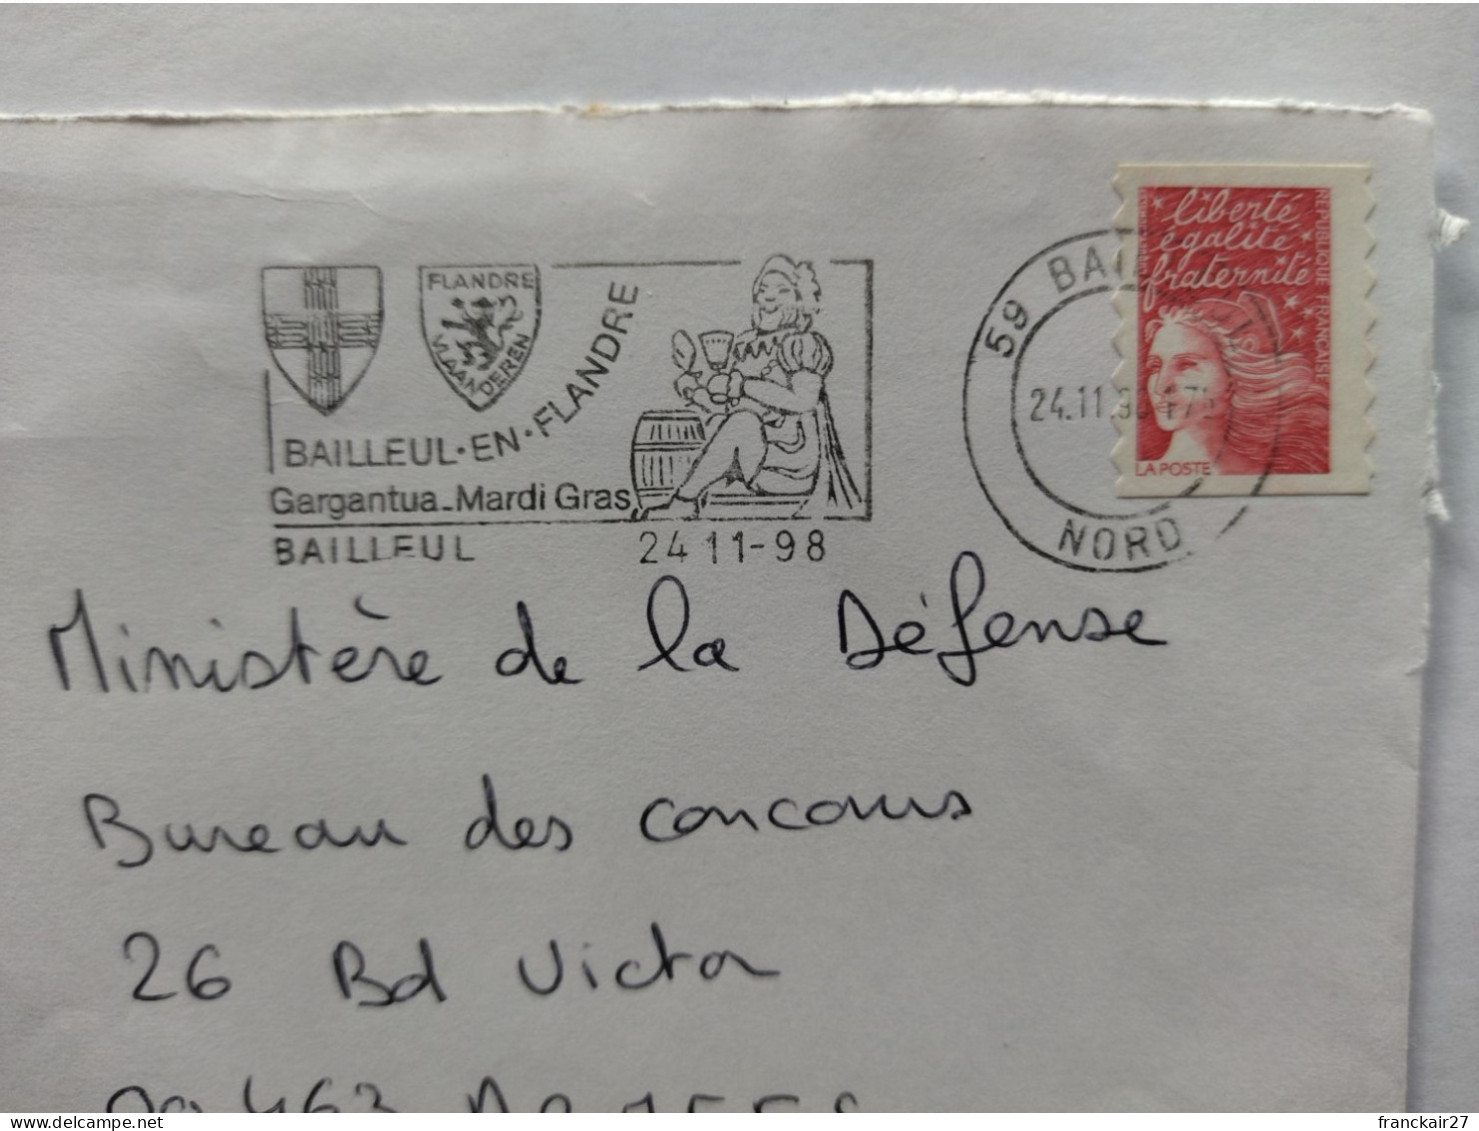 FLANDRE
VLAANDEREN
BAILLEUL·EN·FLANDRE
Gargantua_Mardi Gras
BAILLEUL 24 11-98
59 NORD
24.11
liberté
égalité
fraternité
REPUBLIQUE FRANÇAISE
LA POSTE
Ministère de la Défense
Bureau des concours
26 Bd Victor
00 463 ARMEES
franckair27